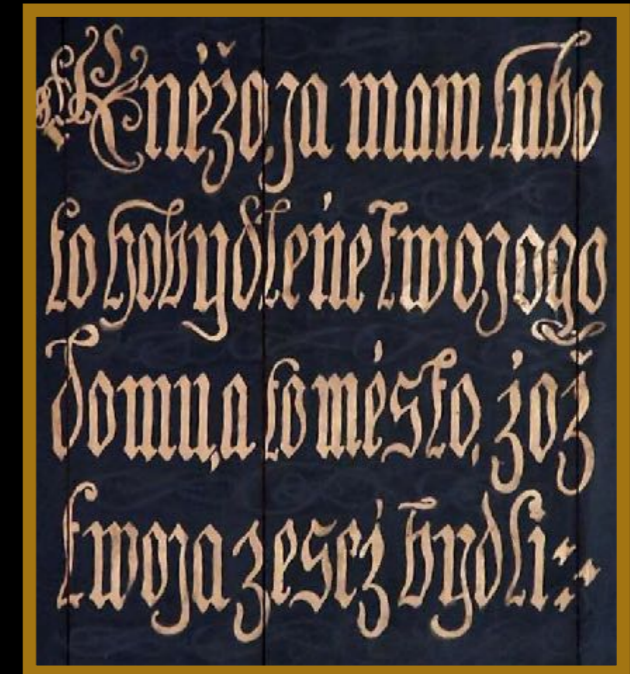 Knéžo, ja mam lubo
to hobydleńe twojogo
domu, a to mésto, żož
twoja zescż bydli